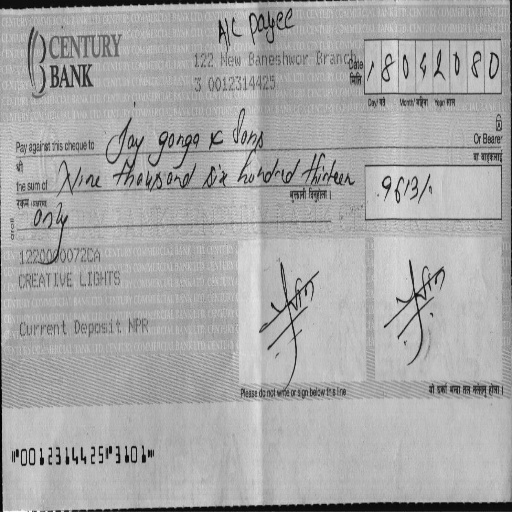 A/C payee
CENTURY BANK
122 New Baneshwor Branch
3 0012314425
Date मिति 18042080
Day/गते Month/महिना Year/साल
Pay against this cheque to Jay gonga & Sons Or Bearer
श्री वा वाहकलाई
the sum of Nine thousand six hundred thirteen 9613/.
रकम
only
1220000072CA
CREATIVE LIGHTS
Current Deposit NPR
Please do not write or sign below this line
"0012314425"3101"